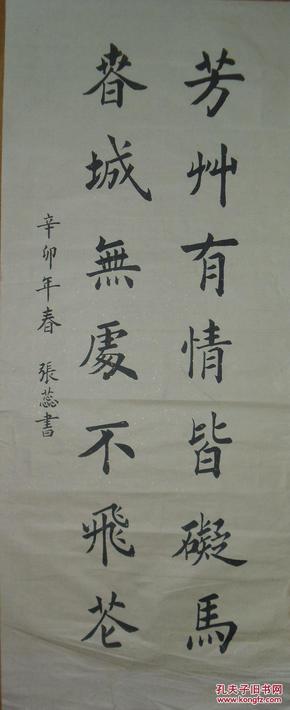 芳艸有情皆礙馬
春城無處不飛花
辛卯年春 張蕊書
孔夫子旧书网